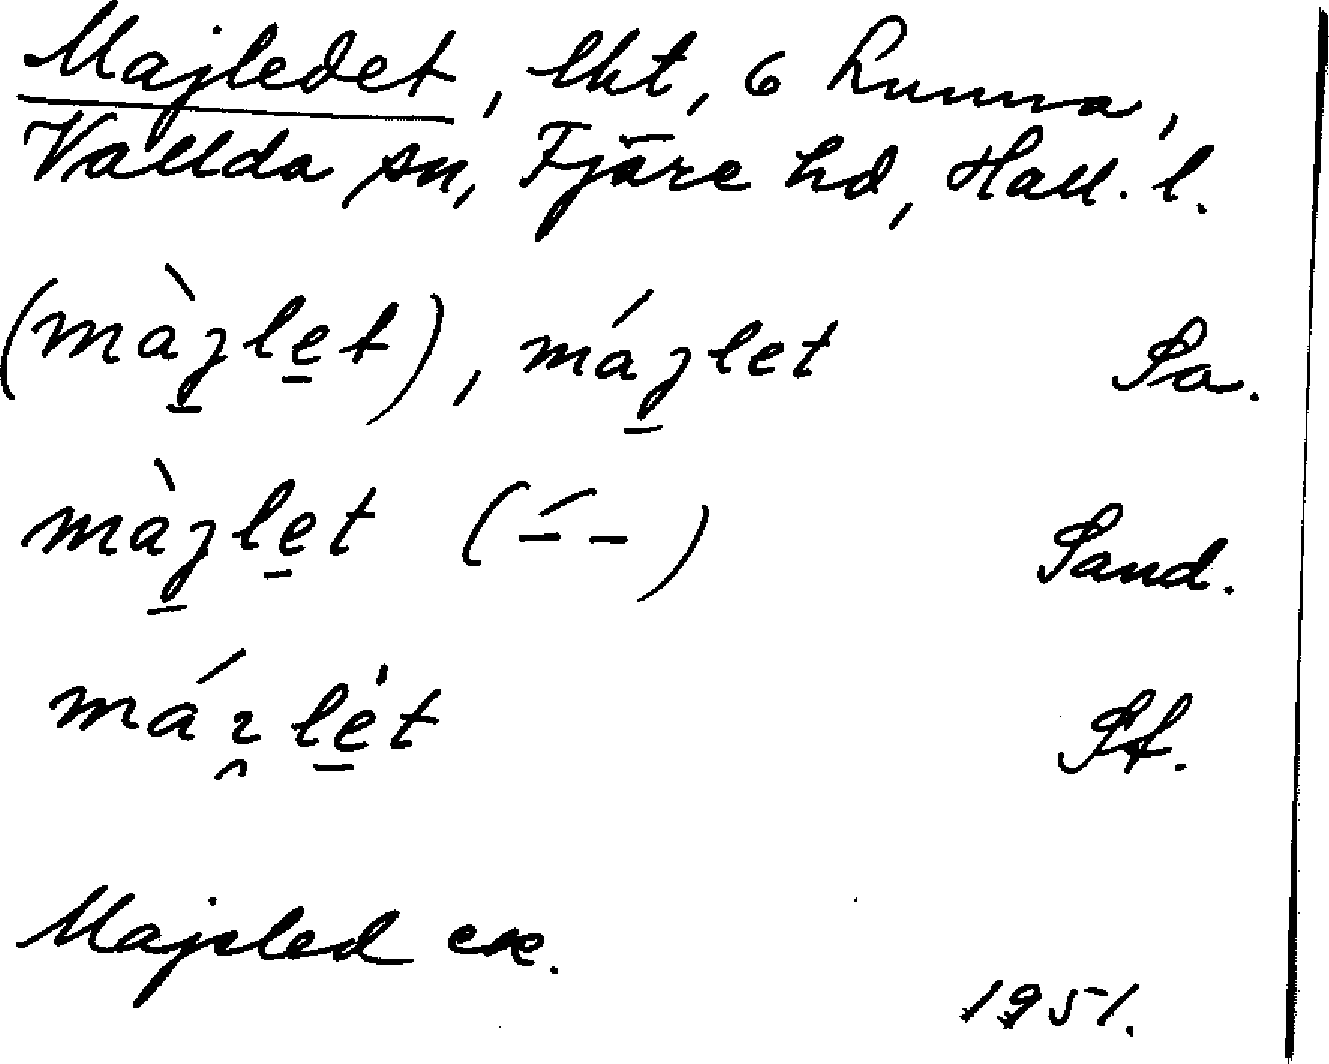 Majledet, lht, 6 Lunna,
Vallda sn, Fjäre hd, Hall. l.
(màȷ̱le̱t), máȷ̱let Sa.
màȷ̱le̱t (–́ –) Sand.
le̱̍t St.
Majsled exc.
1951.